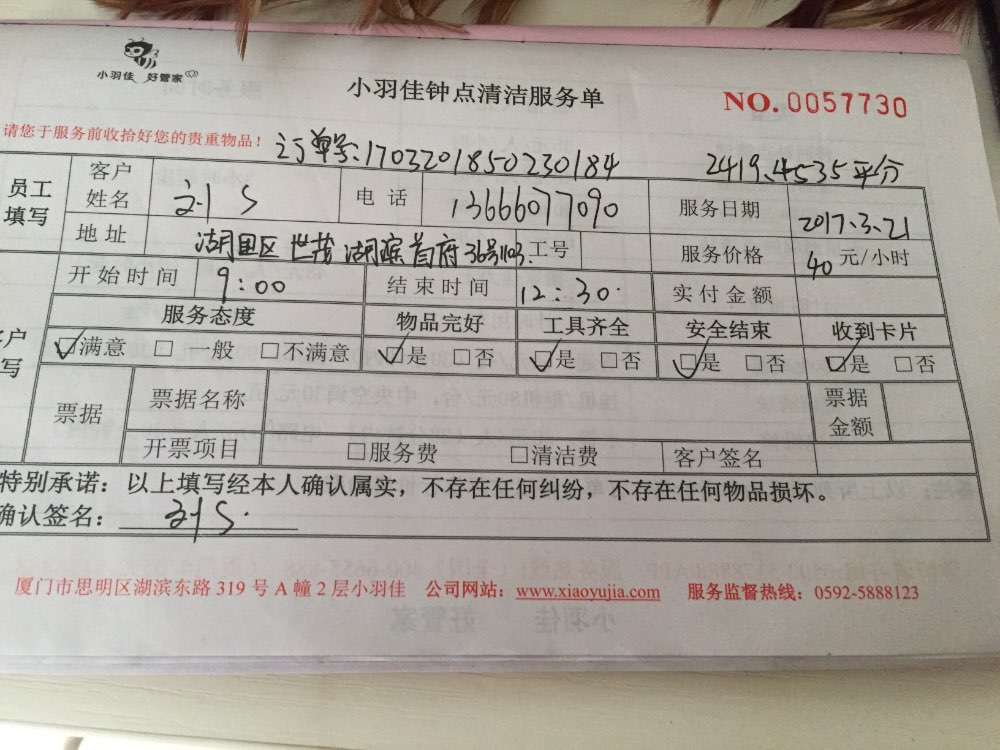 小羽佳 好管家
小羽佳钟点清洁服务单
NO. 0057730
请您于服务前收拾好您的贵重物品！
订单号:1703201850230184 2419.4535平分
员工填写 客户姓名 刘S 电话 13666077090 服务日期 2017.3.21
地址 湖里区世茂湖滨首府36号1103. 工号 服务价格 40元/小时
开始时间 9:00 结束时间 12:30. 实付金额
服务态度 物品完好 工具齐全 安全结束 收到卡片
☑满意 □一般 □不满意 ☑是 □否 ☑是 □否 ☑是 □否 ☑是 □否
票据 票据名称 票据金额
开票项目 □服务费 □清洁费 客户签名
特别承诺：以上填写经本人确认属实，不存在任何纠纷，不存在任何物品损坏。
确认签名： 刘S.
厦门市思明区湖滨东路 319 号 A 幢 2 层小羽佳 公司网站：www.xiaoyujia.com 服务监督热线：0592-5888123